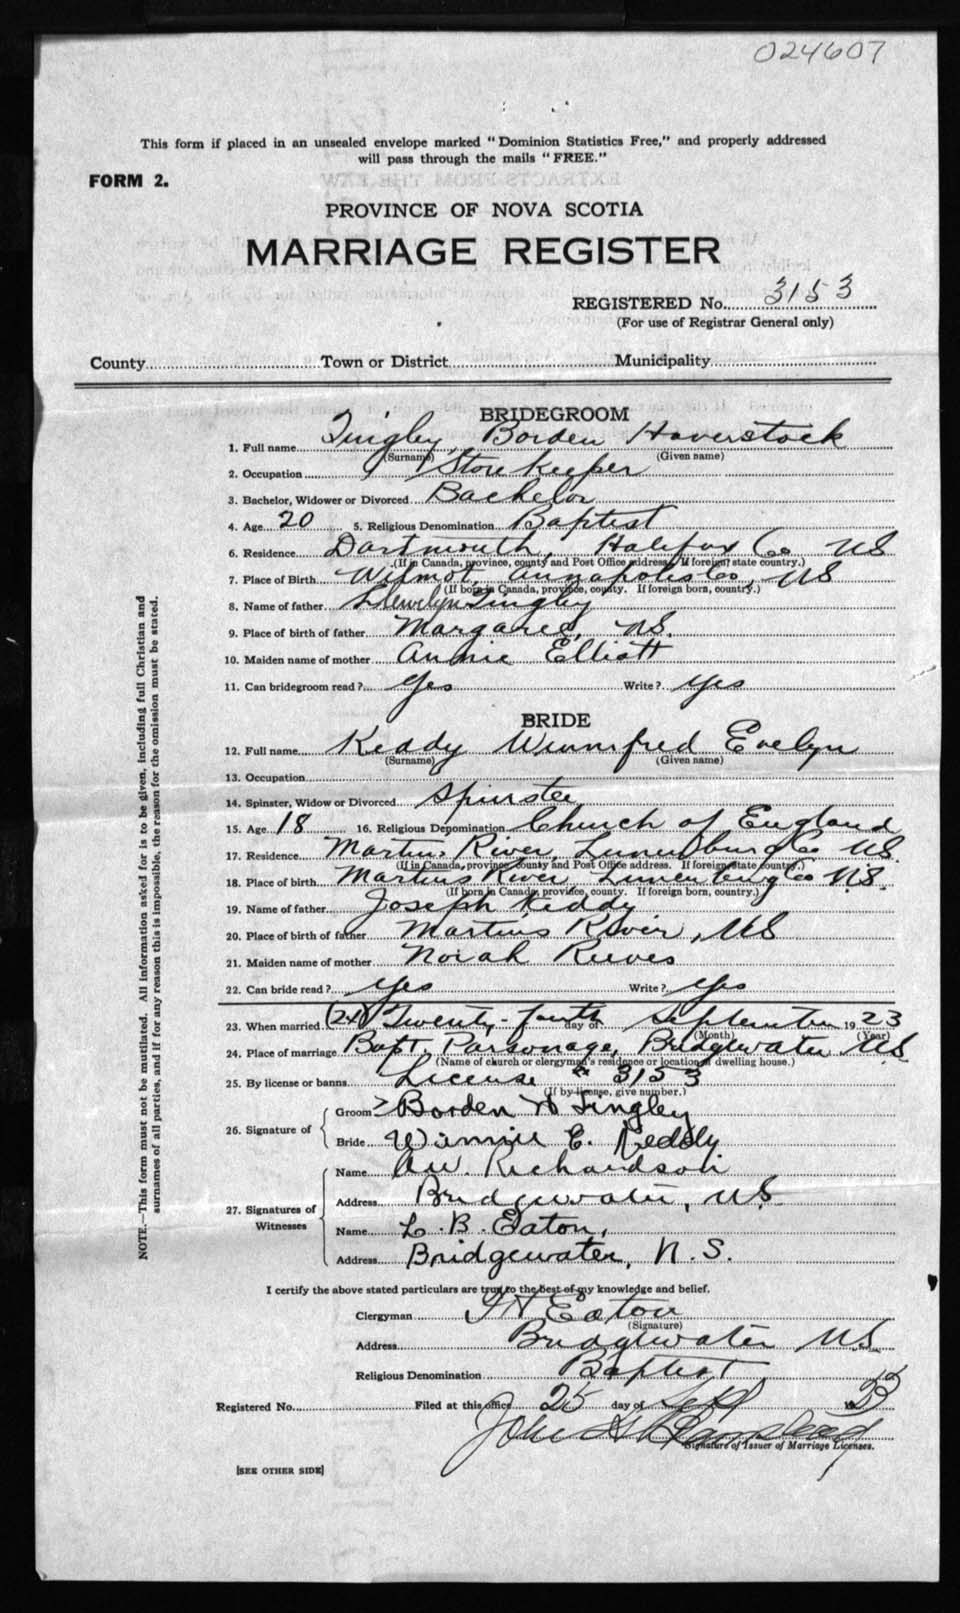 024607
This form if placed in an unsealed envelope marked "Dominion Statistics Free," and properly addressed
will pass through the mails "FREE."
FORM 2.
PROVINCE OF NOVA SCOTIA
MARRIAGE REGISTER
REGISTERED No. 3153
(For use of Registrar General only)
County Town or District Municipality
BRIDEGROOM
1. Full name Tingley Borden Haverstock
(Surname) (Given name)
2. Occupation Storekeeper
3. Bachelor, Widower or Divorced Bachelor
4. Age 20 5. Religious Denomination Baptist
6. Residence Dartmouth, Halifax Co NS
(If in Canada, province, county and Post Office address. If foreign, state country.)
7. Place of Birth Wilmot, Annapolis Co, NS
(If born in Canada, province, county. If foreign born, country.)
8. Name of father Llewelyn Tingley
9. Place of birth of father Margaree, NS.
10. Maiden name of mother Annie Elliott
11. Can bridegroom read? Yes Write? Yes
BRIDE
12. Full name Keddy Winnifred Evelyn
(Surname) (Given name)
13. Occupation
14. Spinster, Widow or Divorced Spinster
15. Age 18 16. Religious Denomination Church of England
17. Residence Martins River, Lunenburg Co NS.
(If in Canada, province, county and Post Office address. If foreign, state country.)
18. Place of birth Martins River, Lunenburg Co NS.
(If born in Canada, province, county. If foreign born, country.)
19. Name of father Joseph Keddy
20. Place of birth of father Martins River, NS
21. Maiden name of mother Norah Reeves
22. Can bride read? Yes Write? Yes
23. When married (24) Twenty-fourth day of September 1923
(Month) (Year)
24. Place of marriage Bapt. Parsonage, Bridgewater NS.
(Name of church or clergyman's residence or location of dwelling house.)
25. By license or banns License # 3153
(If by license, give number.)
26. Signature of Groom Borden H Tingley
Bride Winnie E. Keddy
27. Signatures of Witnesses Name A.W. Richardson
Address Bridgewater, NS
Name L. B. Eaton,
Address Bridgewater, N.S.
I certify the above stated particulars are true to the best of my knowledge and belief.
Clergyman Eaton
(Signature)
Address Bridgewater NS.
Religious Denomination Baptist
Registered No. Filed at this office 25 day of Sept 23
John
Signature of Issuer of Marriage Licenses.
[SEE OTHER SIDE]
NOTE.—This form must not be mutilated. All information asked for is to be given, including full Christian and
surnames of all parties, and if for any reason this is impossible, the reason for the omission must be stated.